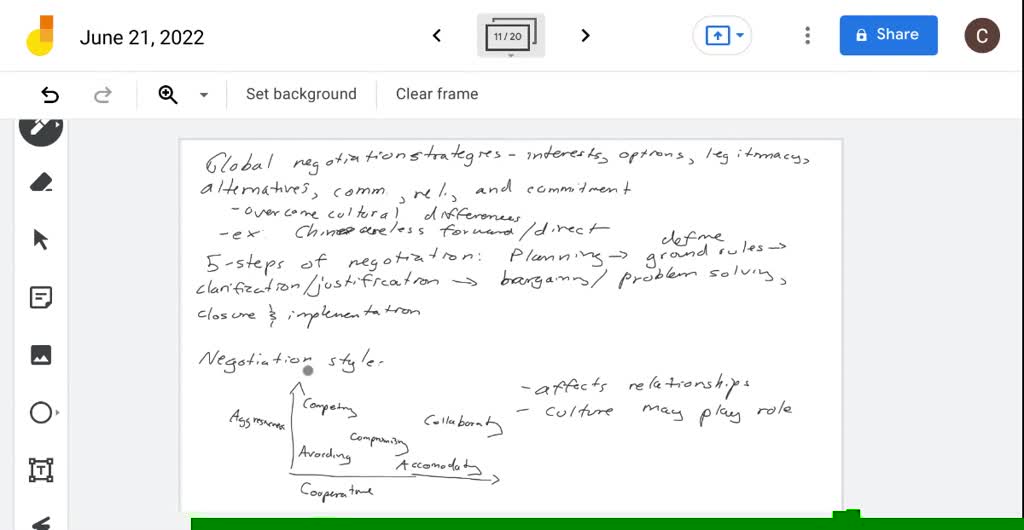 June 21, 2022
11 / 20
Share
C
Set background
Clear frame
Global negotiation strategies - interests, options, legitimacy,
alternatives, comm, rel., and commitment
- overcome cultural differences
- ex Chinese are less forward/direct
5-steps of negotiation: Planning → define ground rules →
clarification/justification → bargaining/problem solving,
closure & implementation
Negotiation style-
- affects relationships
- culture may play role
Competing
Aggressiveness
Collaborating
Compromising
Avoiding
Accomodating
Cooperative